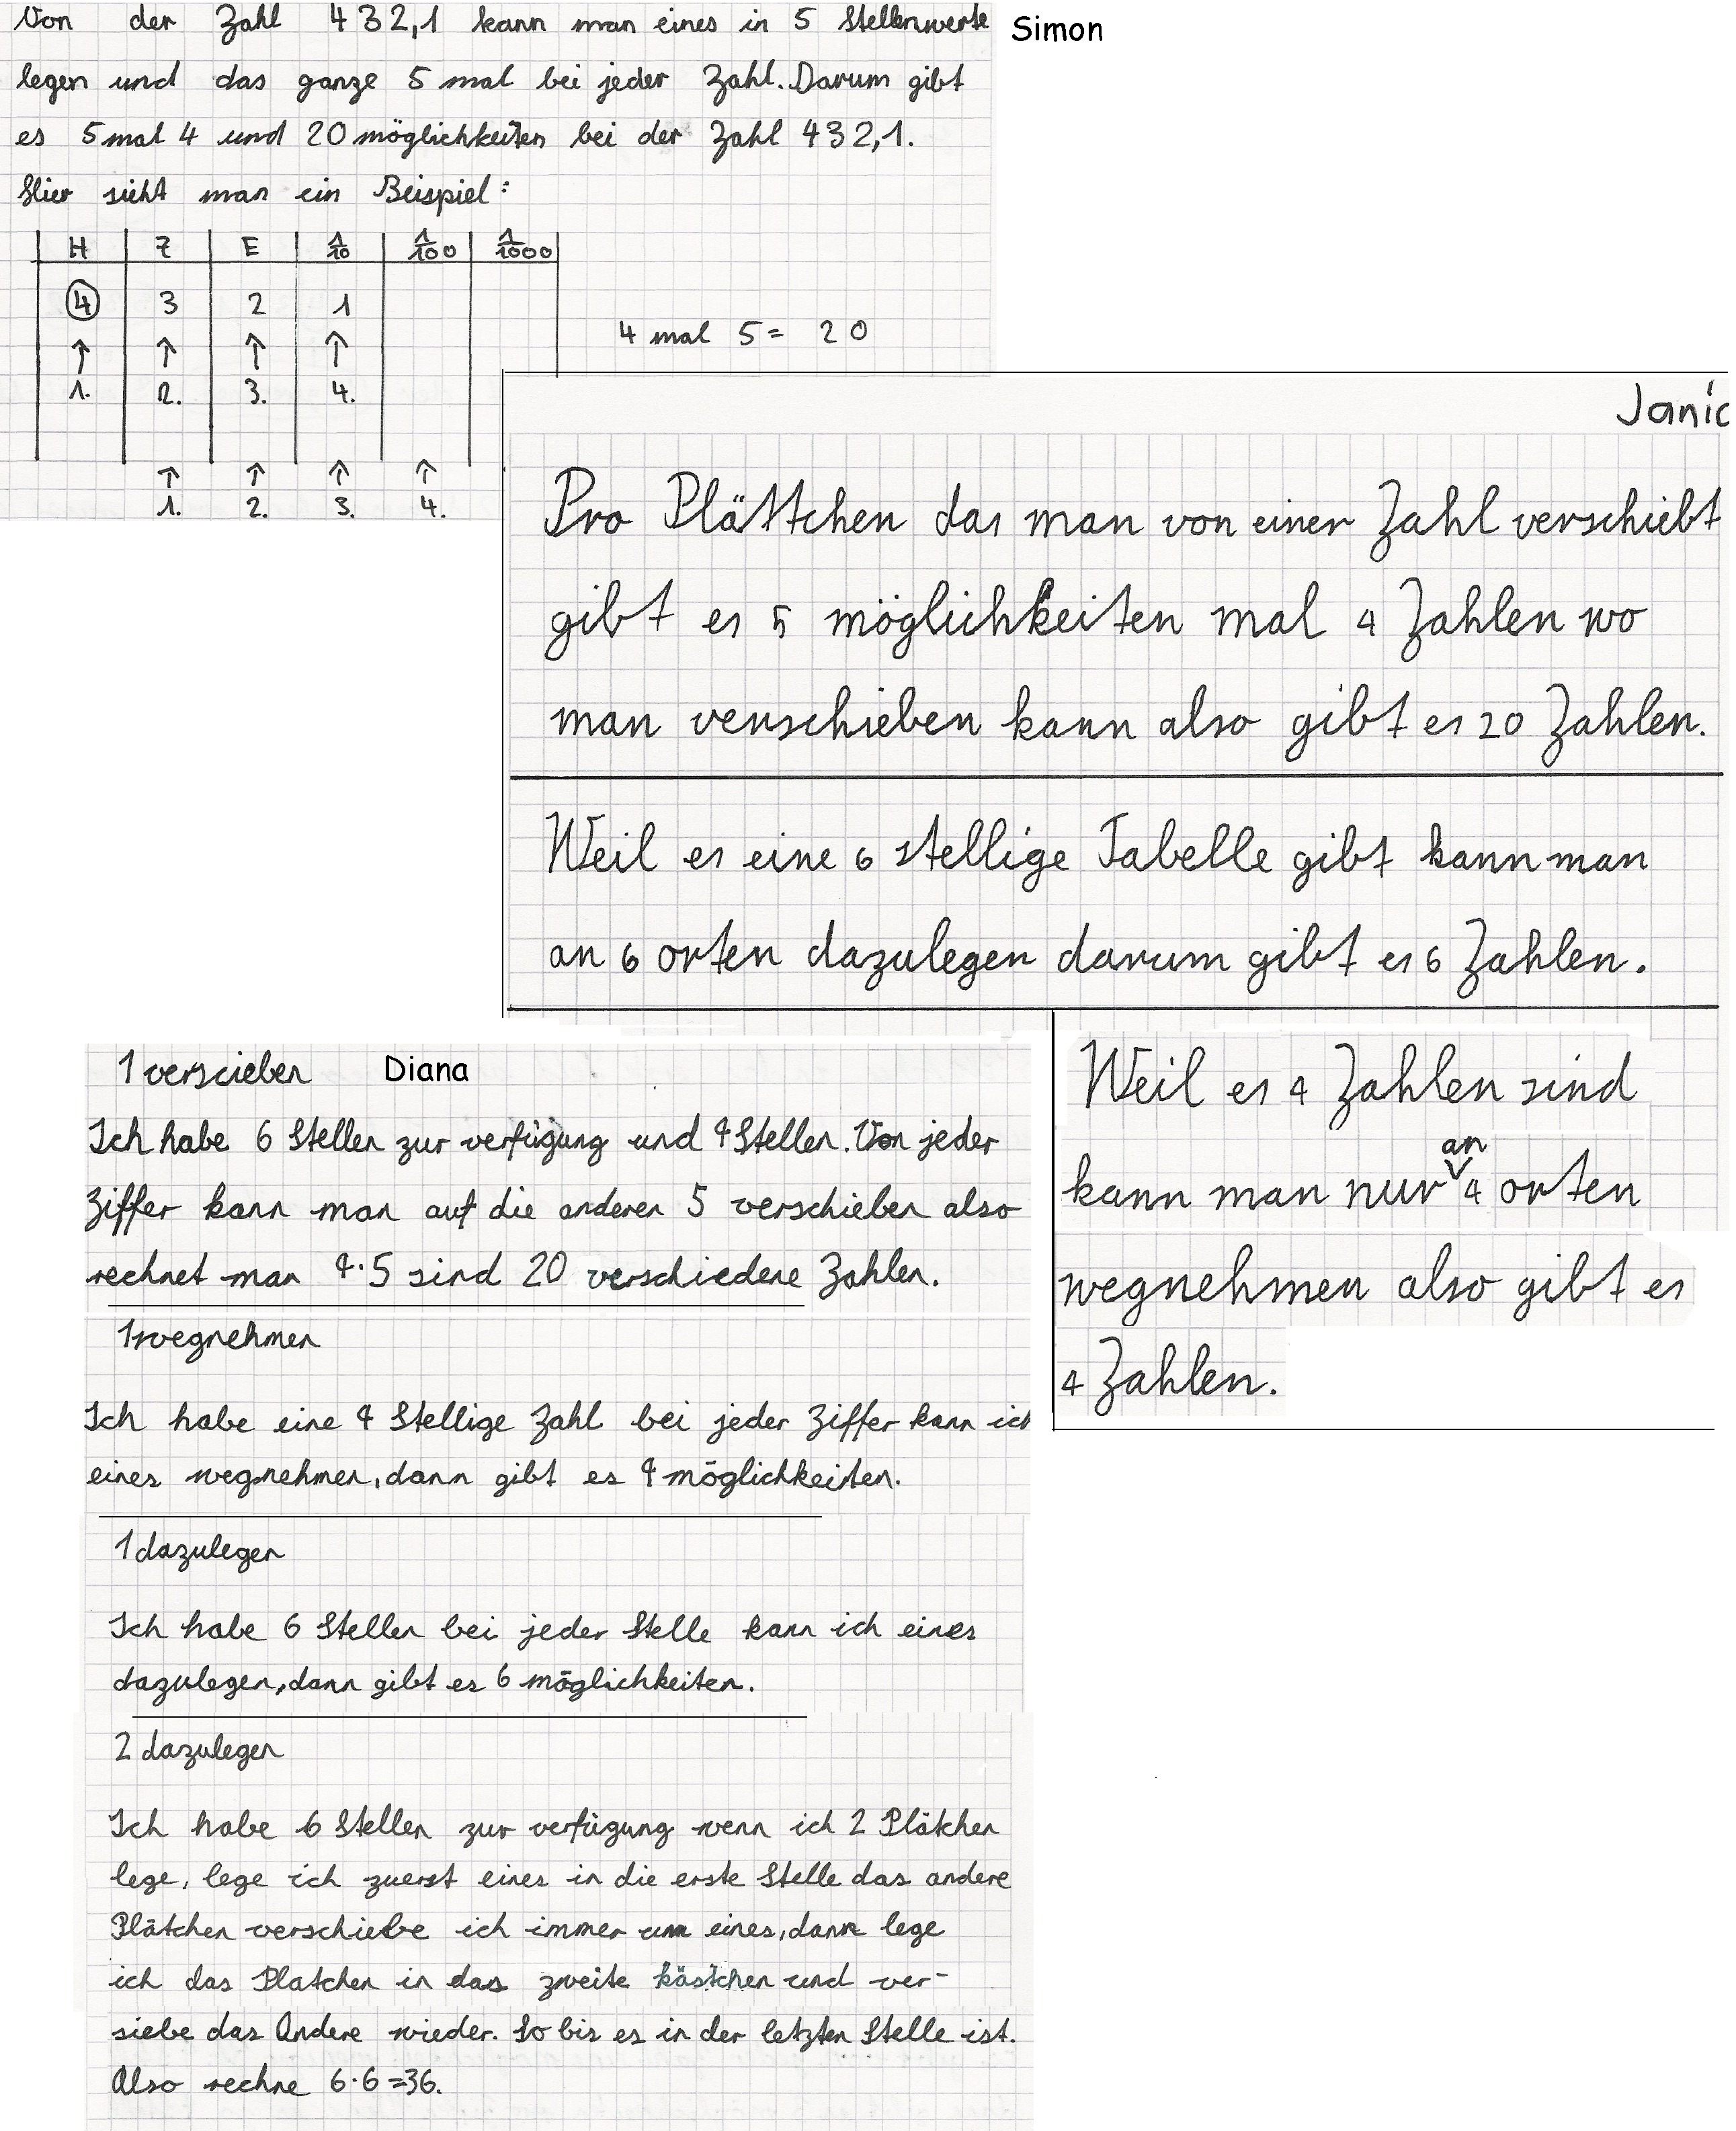 Von der Zahl 432,1 kann man eines in 5 Stellenwerte
legen und das ganze 5 mal bei jeder Zahl. Darum gibt
es 5 mal 4 und 20 möglichkeiten bei der Zahl 432,1.
Hier sieht man ein Beispiel:
H Z E 1/10 1/100 1/1000
4 3 2 1
↑ ↑ ↑ ↑
1. 2. 3. 4.
↑ ↑ ↑ ↑
1. 2. 3. 4.
4 mal 5 = 20
Simon
Janic
Pro Plättchen das man von einer Zahl verschiebt
gibt es 5 möglichkeiten mal 4 Zahlen wo
man verschieben kann also gibt es 20 Zahlen.
Weil es eine 6 stellige Tabelle gibt kann man
an 6 orten dazulegen darum gibt es 6 Zahlen.
Weil es 4 Zahlen sind
kann man nur an 4 orten
wegnehmen also gibt es
4 Zahlen.
1 verscieben Diana
Ich habe 6 Stellen zur verfügung und 4 Stellen. Von jeder
Ziffer kann man auf die anderen 5 verschieben also
rechnet man 4·5 sind 20 verschiedene Zahlen.
1 wegnehmen
Ich habe eine 4 Stellige Zahl bei jeder Ziffer kann ich
eines wegnehmen, dann gibt es 4 möglichkeiten.
1 dazulegen
Ich habe 6 Stellen bei jeder Stelle kann ich eines
dazulegen, dann gibt es 6 möglichkeiten.
2 dazulegen
Ich habe 6 Stellen zur verfügung wenn ich 2 Plätchen
lege, lege ich zuerst eines in die erste Stelle das andere
Plätchen verschiebe ich immer um eines, dann lege
ich das Platchen in das zweite kästchen und ver-
siebe das Andere wieder. So bis es in der letzten Stelle ist.
Also rechne 6·6=36.